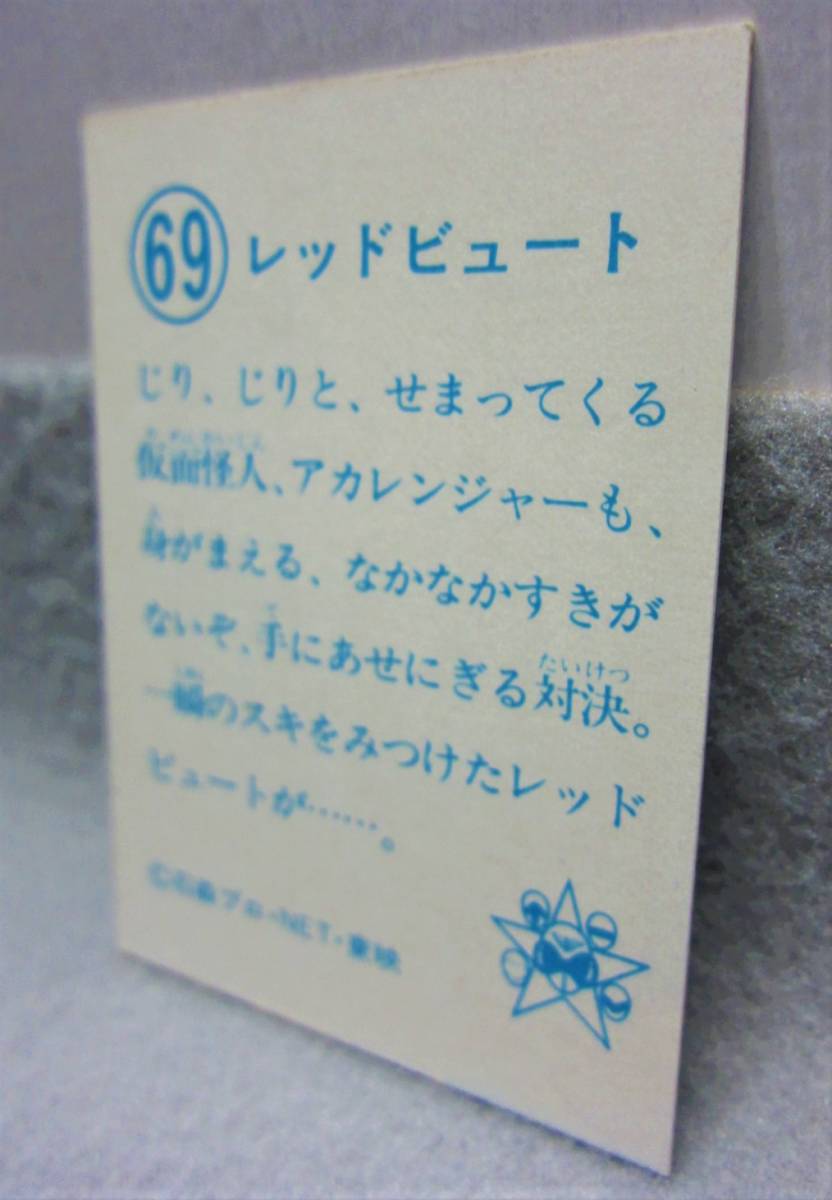 69 レッドビュート
じり、じりと、せまってくる
仮面怪人、アカレンジャーも、
身がまえる、なかなかすきが
ないぞ、手にあせにぎる対決。
たいけつ
一瞬のスキをみつけたレッド
ビュートが……。
©石森プロ・NET・東映